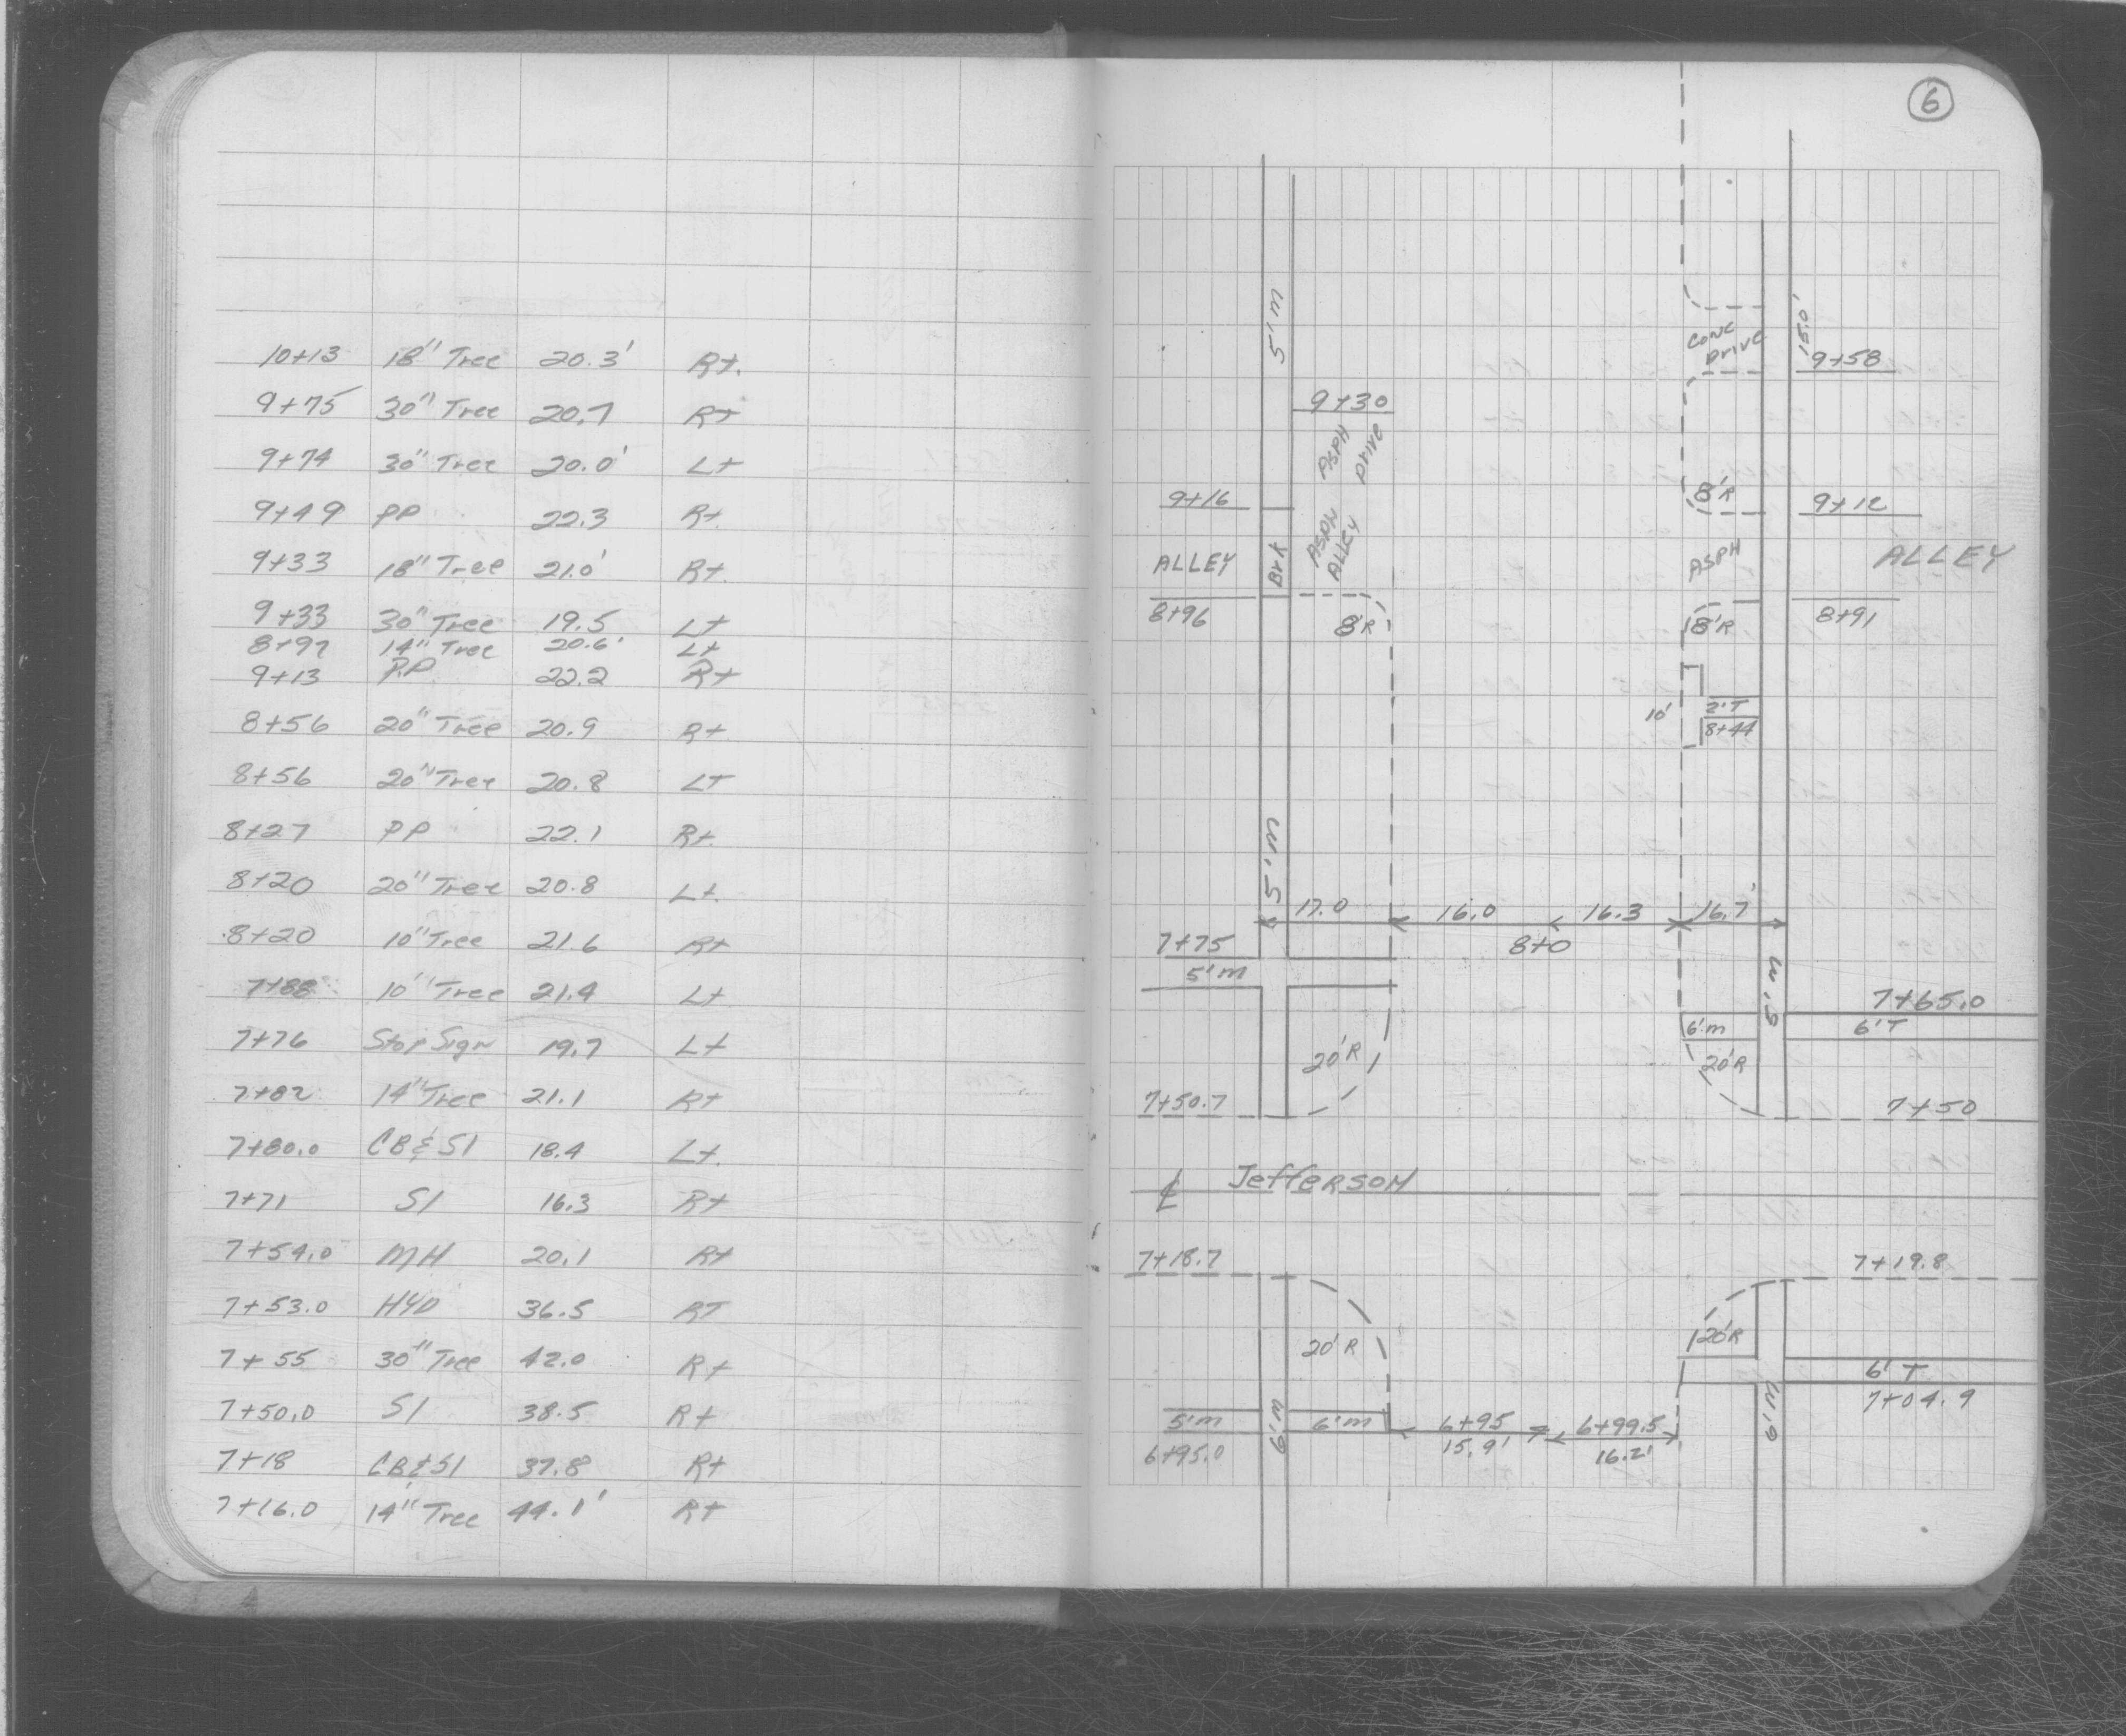 10+13 18" Tree 20.3' Rt.
9+75 30" Tree 20.7 Rt
9+74 30" Tree 20.0' Lt
9+49 PP 22.3 Rt
9+33 18" Tree 21.0' Rt.
9+33 30" Tree 19.5 Lt
14" Tree 20.6' Lt
9+13 P.P. 22.2 Rt
8+56 20" Tree 20.9 Rt
8+56 20" Tree 20.8 Lt
8+27 PP 22.1 Rt.
8+20 20" Tree 20.8 Lt.
8+20 10" Tree 21.6 Rt
7+88 10" Tree 21.4 Lt
7+76 Stop Sign 19.7 Lt
7+82 14" Tree 21.1 Rt
7+80.0 CB & SI 18.4 Lt.
7+71 SI 16.3 Rt
7+54.0 MH 20.1 Rt
7+53.0 HYD 36.5 RT
7+55 30" Tree 42.0 Rt
7+50.0 SI 38.5 Rt
7+18 CB & SI 37.8 Rt
7+16.0 14" Tree 44.1' Rt
6
5'm
CONC
Drive
15.0'
9+58
9+30
ASPH
Drive
9+16
8'R
9+12
ALLEY
Brk
ASPH
ALLEY
ASPH
ALLEY
8+96
8'R
8'R
8+91
10'
2'T
8+44
5'm
17.0 16.0 16.3 16.7
7+75
8+0
5'm
5'm
7+65.0
6'm
6'T
20'R
20'R
7+50.7
7+50
℄ Jefferson
7+18.7
7+19.8
20'R
20'R
6'T
7+04.9
5'm
6'm
6'm
6+95
6+99.5
6'm
6+95.0
15.9'
16.2'